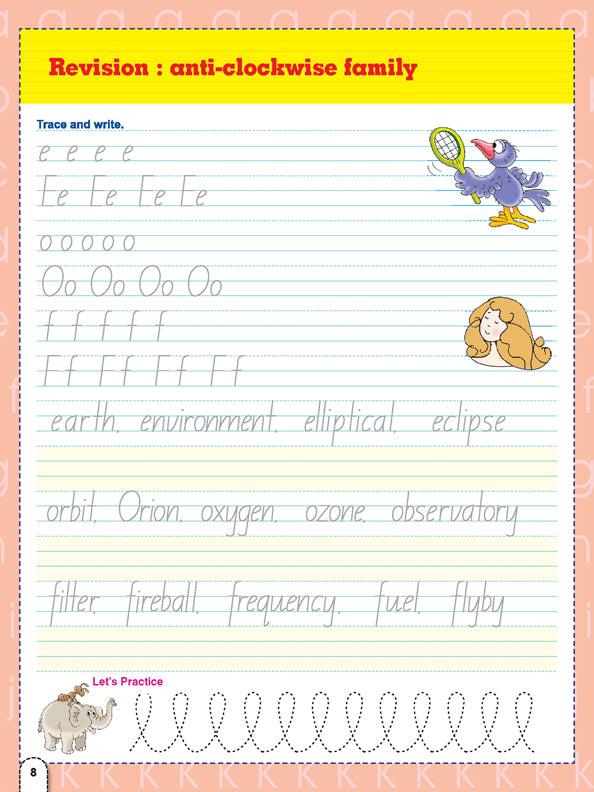 Revision : anti-clockwise family
Trace and write.
e e e e
Ee Ee Ee Ee
o o o o o
Oo Oo Oo Oo
f f f f f
Ff Ff Ff Ff
earth, environment, elliptical, eclipse
orbit, Orion, oxygen, ozone, observatory
filter, fireball, frequency, fuel, flyby
Let's Practice
8